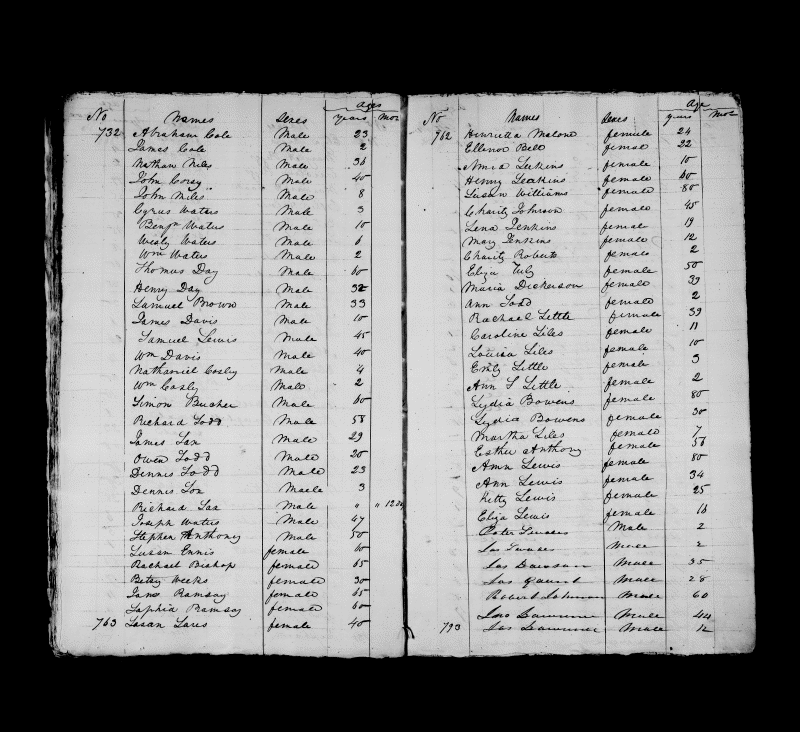 Ages
No Names Sexes years Mos
732 Abraham Cole Male 23
James Cole Male 2
Nathan Niles Male 36
John Corsy Male 40
John Niles Male 8
Cyrus Waters Male 3
Benjn Waters Male 10
Wesly Waters Male 6
Wm Waters Male 2
Thomas Day Male 60
Henry Day Male 32
Samuel Brown Male 33
James Davis Male 10
Samuel Lewis Male 45
Wm Davis Male 40
Nathaniel Cosby Male 4
Wm Casby Male 2
Simon Bucher Male 60
Richard Todd Male 58
James Sax Male 29
Owen Todd Male 20
Dennis Todd Male 23
Dennis Sax Maele 3
Richard Sax Male " "
Joseph Waters Male 47
Stephen Anthony Male 50
Susan Ennis female 60
Rachael Bishop female 65
Betsy Weeks female 30
Jane Ramsay female 65
Sophia Ramsay female 60
763 Susan female 40
Age
No Names Sexes years Mos
762 Henrietta Malone female 24
Ellenor Bell female 22
female 10
Henry Leakins female 60
Susan Williams female 80
Charity Johnson female 45
Lena Jenkins female 19
May Jenkins female 12
Charity Roberts female 2
Eliza female 50
Maria Dickerson female 39
Ann Todd female 2
Rachael Little female 39
Caroline Liles female 11
Louisa Liles female 10
Emily Little female 3
Ann S Little female 2
Lydia Bowens female 80
Lydia Bowens female 30
Martha Liles female 7
Esther Anthony female 56
Amn Lewis female 80
Ann Lewis female 34
Kitty Lewis female 25
Eliza Lewis female 16
Peter Male 2
Jas Male 2
Jas Dawson Male 35
Jas Gaunt Male 28
Robert Johnson Male 60
Lawrence Male 44
793 Jas Lawrence Male 12